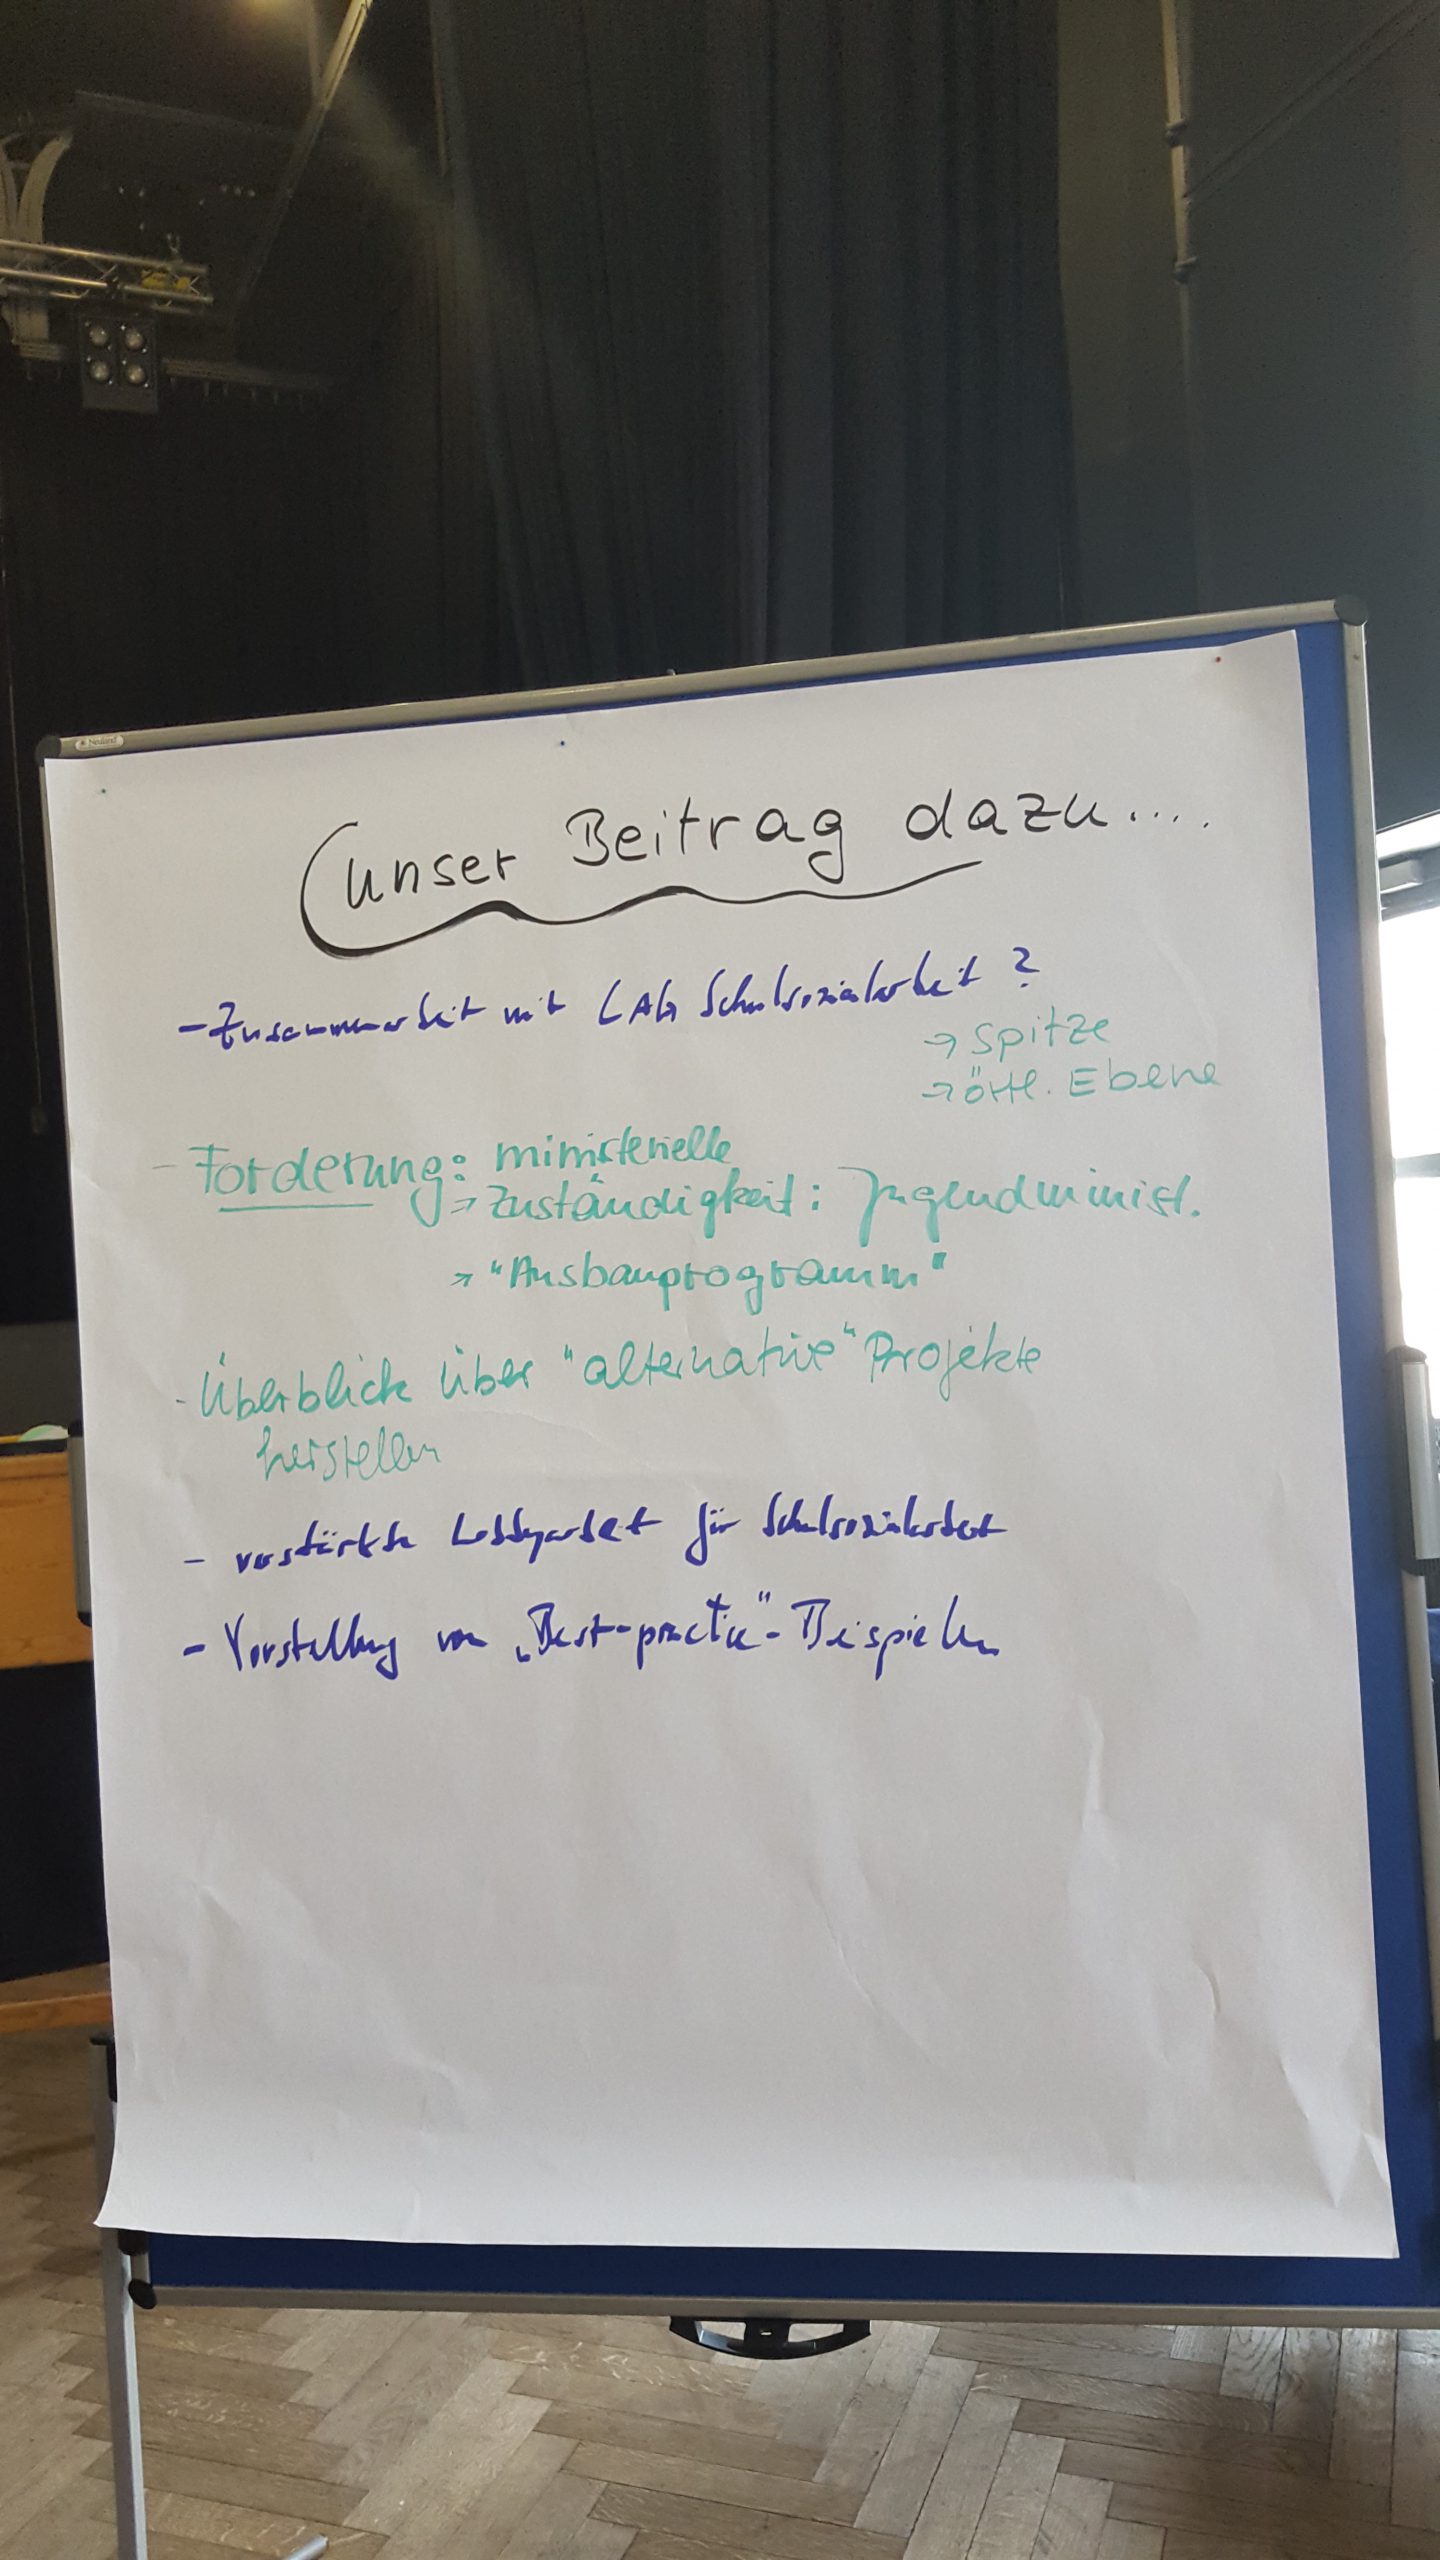 Neuland
unser Beitrag dazu....
- Zusammenarbeit mit LAG Schulsozialarbeit ?
→ Spitze
→ örtl. Ebene
- Forderung: ministerielle
→ Zuständigkeit: Jugendminist.
→ "Ausbauprogramm"
- Überblick über "alternative" Projekte
herstellen
- verstärkte Lobbyarbeit für Schulsozialarbeit
- Vorstellung von „Best-practice"-Beispielen